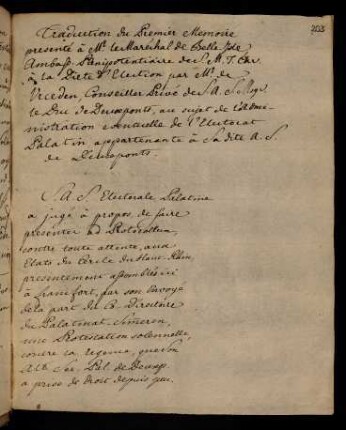 203
Traduction du Premier Memoire
presenté à Mr. le Maréchal de Belle Isle
Ambass. Plenipotentiaire de S. M. T. Chr.
à la Diete d'Election par Mr. de
Conseiller Privé de S. A. S. Msgr.
le Duc de Deuxponts, au sujet de l'Admi-
nistration eventuelle de l'Electorat
Palatin appartenante à Sa dite A. S.
de Deuxponts.
S. A. S. Electorale Palatine
a jugé à propos de faire
presenter ad Protocollum,
contre toute attente, aux
Etats du Cercle du Haut Rhin,
presentement assemblés ici
à Francfort, par son Envoyé
de la part du Co-Directoire
du Palatinat Simeren,
une Protestation solennelle,
contre la regence, que Son
Alt. Ser. Pal. de Deuxp.
a prise de droit depuis peu.